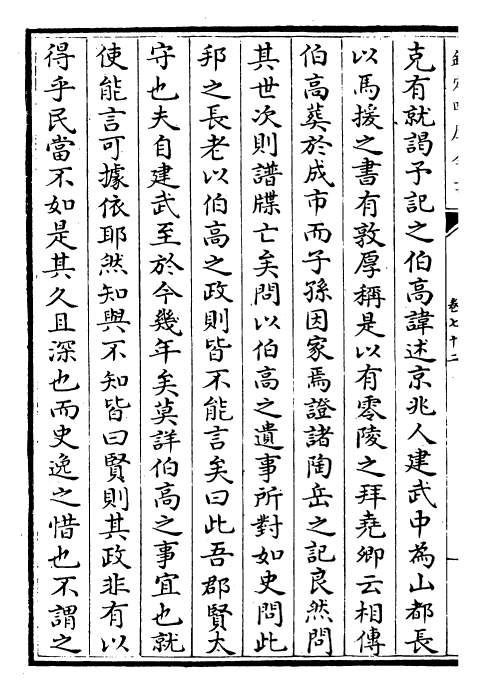 欽定四庫全書
卷七十二
克有就謁予記之伯高諱述京兆人建武中為山都長
以馬援之書有敦厚稱是以有零陵之拜堯卿云相傳
伯高葬於成市而子孫因家焉證諸陶岳之記良然問
其世次則譜牒亡矣問以伯高之遺事所對如史問此
邦之長老以伯高之政則皆不能言矣曰此吾郡賢太
守也夫自建武至於今幾年矣莫詳伯高之事宜也就
使能言可據依耶然知與不知皆曰賢則其政非有以
得乎民當不如是其久且深也而史逸之惜也不謂之